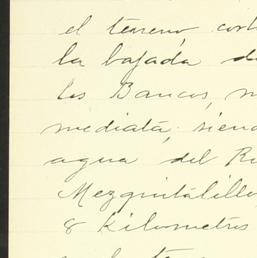 el terreno, cort
la bajada de
los Bancos, m
mediata, siend
agua del R
Mezquitalillo
8 Kilometros